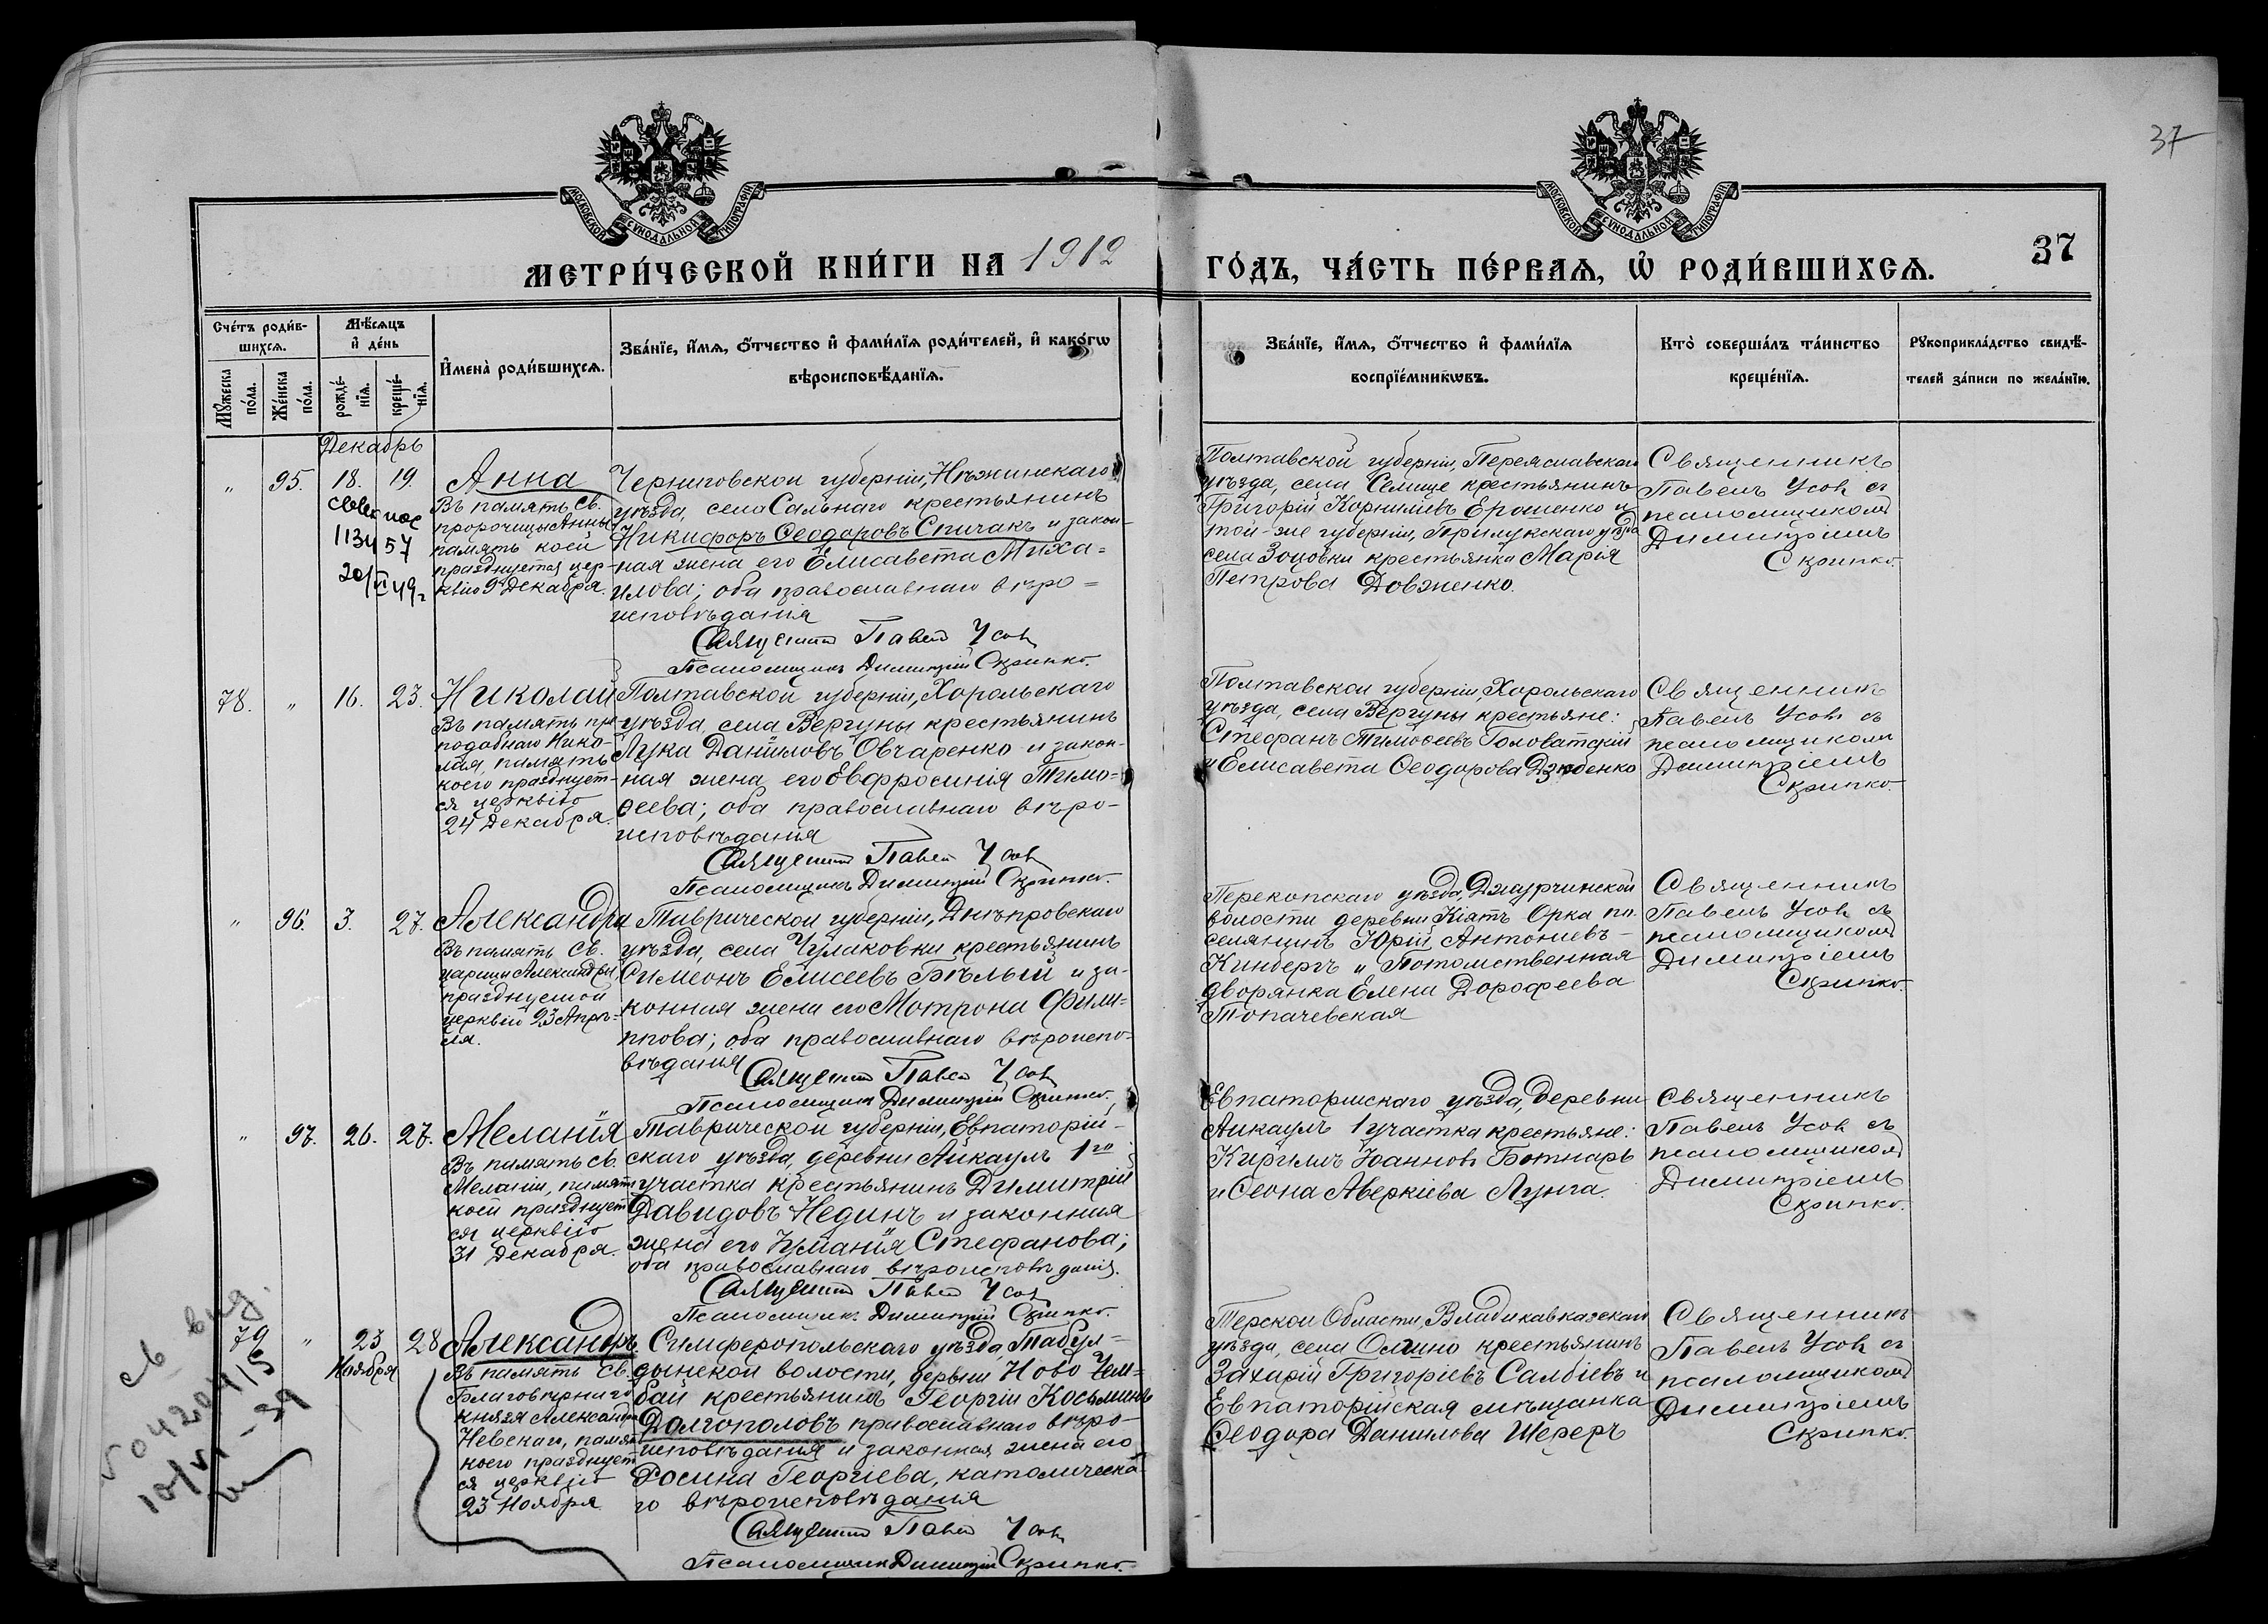 37
МОСКОВСКОЙ СУНОДАЛЬНОЙ ТИПОГРАФІИ
МОСКОВСКОЙ СУНОДАЛЬНОЙ ТИПОГРАФІИ
МЕТРИ́ЧЕСКОЙ КНИ́ГИ НА 1912
ГО́ДЪ, ЧА́СТЬ ПЕ́РВАѦ, Ѡ҆ РОДИ́ВШИХСѦ.
37
Сче́тъ роди́в-
шихсѧ.
Мѣ́сѧцъ
и҆ де́нь
Му́жеска
по́ла.
Же́нска
по́ла.
рожде́-
нїѧ.
креще́-
нїѧ.
И҆мена̀ роди́вшихсѧ.
Зва́нїе, и҆́мѧ, ѻ҆́тчество и҆ фами́лїѧ роди́телей, и҆ како́гѡ
вѣроисповѣ́данїѧ.
Зва́нїе, и҆́мѧ, ѻ҆́тчество и҆ фами́лїѧ
воспрїе́мникѡвъ.
Кто̀ соверша́лъ та́инство
креще́нїѧ.
Рꙋкоприкла́дство свидѣ́-
телей за́писи по жела́нїю.
Декабрь
" 95. 18. 19.
Анна
Въ память Св.
пророчицы Анны
память коей
празднуется цер-
квію 9 Декабря.
Черниговской губерніи, Нѣжинскаго
уѣзда, села Сальнаго крестьянинъ
Никифоръ Ѳеодоровъ Спичакъ и закон-
ная жена его Елисавета Миха-
илова; оба православнаго вѣро-
исповѣданія
Священникъ Павелъ Усовъ
Псаломщикъ Димитрій Скрипко.
Полтавской губерніи, Переяславскаго
уѣзда, села Селище крестьянинъ
Григорій Корниліевъ Ерошенко и
той-же губерніи, Прилукскаго уѣзда
села Зоцовки крестьянка Марія
Петрова Довженко.
Священникъ
Павелъ Усовъ съ
псаломщикомъ
Димитріемъ
Скрипко.
78. " 16. 23.
Николай
Въ память пре-
подобнаго Нико-
лая, память
коего празднует-
ся церквію
24 Декабря.
Полтавской губерніи, Хорольскаго
уѣзда, села Вергуны крестьянинъ
Лука Даніиловъ Овчаренко и закон-
ная жена его Евфросинія Тимо-
ѳеева; оба православнаго вѣро-
исповѣданія
Священникъ Павелъ Усовъ
Псаломщикъ Димитрій Скрипко.
Полтавской губерніи, Хорольскаго
уѣзда, села Вергуны крестьяне:
Стефанъ Тимоѳеевъ Головатскій
и Елисавета Ѳеодорова Дзюбенко
Священникъ
Павелъ Усовъ съ
псаломщикомъ
Димитріемъ
Скрипко.
" 96. 3. 27.
Александра
Въ память Св.
царицы Александры,
празднуемой
церквію 23 Апрѣ-
ля.
Таврической губерніи, Днѣпровскаго
уѣзда, села Чулаковки крестьянинъ
Симеонъ Елисеевъ Бѣлый и за-
конная жена его Мотрона Фили-
ппова; оба православнаго вѣроиспо-
вѣданія
Священникъ Павелъ Усовъ
Псаломщикъ Димитрій Скрипко.
Перекопскаго уѣзда, Джурчинской
волости деревни Кіятъ Орка по-
селянинъ Юрій Антоніевъ
Кинбергъ и Потомственная
дворянка Елена Дорофеева
Топачевская
Священникъ
Павелъ Усовъ съ
псаломщикомъ
Димитріемъ
Скрипко.
" 97. 26. 27.
Меланія
Въ память св.
Меланіи, память
коей празднует-
ся церквію
31 Декабря.
Таврической губерніи, Евпаторій-
скаго уѣзда, деревни Аикаулъ 1го
участка крестьянинъ Димитрій
Давидовъ Нединъ и законная
жена его Іуліанія Стефанова;
оба православнаго вѣроисповѣданія.
Священникъ Павелъ Усовъ
Псаломщикъ Димитрій Скрипко.
Евпаторійскаго уѣзда, деревни
Аикаулъ 1 участка крестьяне:
Кириллъ Іоанновъ Ботнарь
и Ѳеона Аверкіева Лунга.
Священникъ
Павелъ Усовъ съ
псаломщикомъ
Димитріемъ
Скрипко.
79 " 23 Ноября 28
Александръ
Въ память Св.
Благовѣрнаго
князя Александра
Невскаго, память
коего празднует-
ся церквію
23 Ноября
Симферопольскаго уѣзда, Табул-
дынской волости, дервни Ново Чем-
бай крестьянинъ Георгій Косьминъ
Долгополовъ православнаго вѣро-
исповѣданія и законная жена его
Росина Георгіева, католическа-
го вѣроисповѣданія
Священникъ Павелъ Усовъ
Псаломщикъ Димитрій Скрипко.
Терской Области, Владикавказскаго
уѣзда, села Ольгино крестьянинъ
Захарій Григоріевъ Салбіевъ и
Евпаторійская мѣщанка
Ѳеодора Данилова Шереръ
Священникъ
Павелъ Усовъ съ
псаломщикомъ
Димитріемъ
Скрипко.